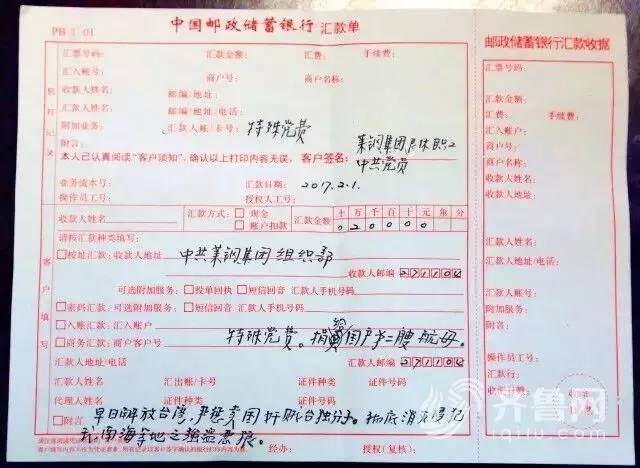 PB 2 01
中国邮政储蓄银行 汇款单
邮政储蓄银行汇款收据
汇票号码: 汇款金额: 汇费: 手续费:
汇入账号: 商户号: 商户名称:
收款人姓名: 邮编/地址:
汇款人姓名: 邮编/地址/电话:
附加业务: 汇款人账/卡号: 特殊党费
附言: 莱钢集团退休职工
本人已认真阅读“客户须知”,确认以上打印内容无误, 客户签名: 中共党员
业务流水号: 汇款日期: 2017.2.1.
操作员工号: 授权人工号:
银行记录
收款人姓名 汇款方式: 现金 账户扣款 汇款金额 十万千百十元角分
020000
请按汇款种类填写:
按址汇款: 收款人地址 中共莱钢集团组织部
收款人邮编 271104
可选附加服务: 投单回执 短信回音 汇款人手机号码
密码汇款: 可选附加服务: 短信回音 汇款人手机号码
入账汇款: 汇入账户
商务汇款: 商户客户号 特殊党费。捐给国产二艘航母。
汇款人地址/电话 汇款人邮编 271104
汇款人姓名 汇出账/卡号 证件种类 证件号码
代理人姓名 证件种类 证件号码
附言 早日解放台湾,严惩卖国奸贼台独分子。彻底消灭侵犯
我南海等地之强盗恶狼。
客户填写
经办: 授权(复核):
汇票号码:
汇款金额:
汇费: 手续费:
汇入账户:
商户号:
商户名称:
收款人姓名:
收款人地址:
汇款人姓名:
汇款人地址/电话:
汇款人账号:
附加服务:
附言:
操作员工号:
汇款行:
收汇日期:
齐鲁网
iqilu.com